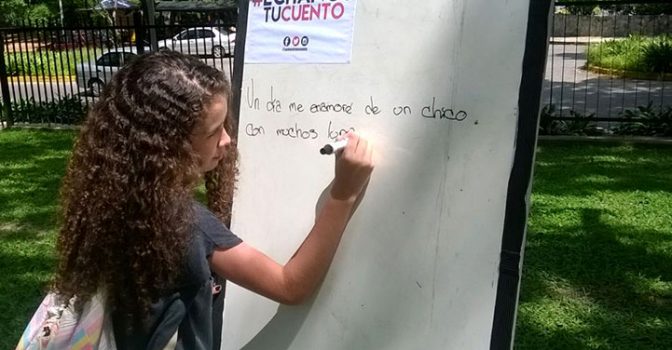 TUCUENTO
Un día me enamoré de un chico
con muchos